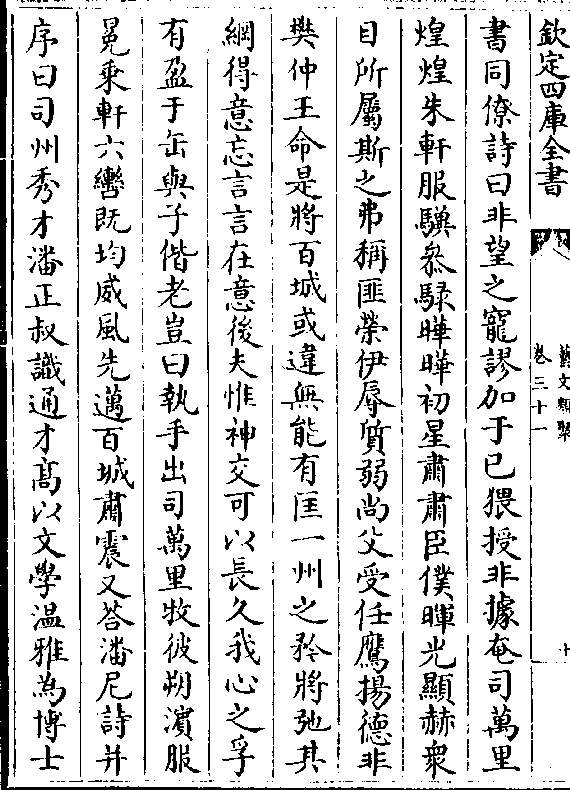 欽定四庫全書
藝文類聚
卷三十一
十
書同僚詩曰非望之寵謬加于已猥授非據奄司萬里
煌煌朱軒服驥叅騄曄曄初星肅肅臣僕暉光顯赫衆
目所屬斯之弗稱匪榮伊辱質弱尚父受任鷹揚德非
樊仲王命是將百城或違無能有匡一州之矜將弛其
綱得意忘言言在意後夫惟神交可以長久我心之孚
有盈于缶與子偕老豈曰執手出司萬里牧彼朔濵服
冕乘軒六轡既均威風先邁百城肅震又答潘尼詩并
序曰司州秀才潘正叔識通才髙以文學温雅為博士